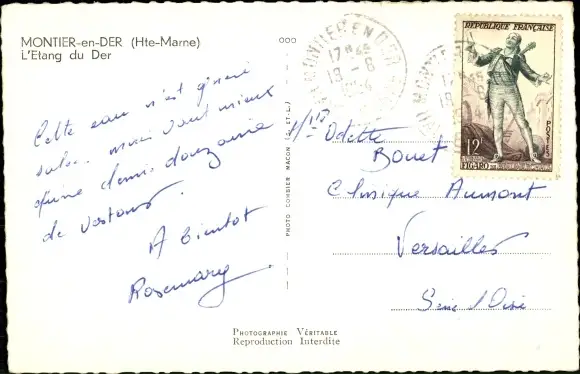 MONTIER-en-DER (Hte-Marne)
L'Etang du Der
Cette eau n'est
mais vaut mieux
qu'une demi-douzaine
de
A bientot
Rosemary.
PHOTO COMBIER MACON (S.-ET-L.)
MONTIER EN DER
17H45
18-8
REPUBLIQUE FRANÇAISE
12F
POSTES
FIGARO
Mlle Odette
Bouet
Clinique Aumont
Versailles
Seine et Oise
PHOTOGRAPHIE VÉRITABLE
Reproduction Interdite